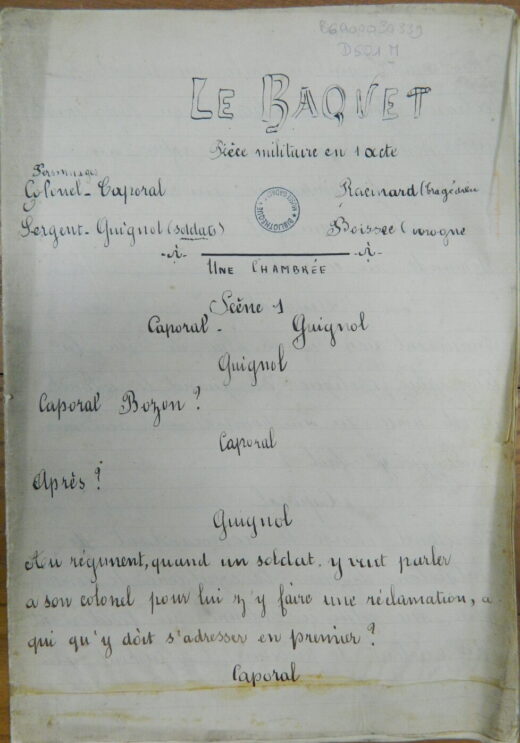 B690003G339
D501 M
LE BAQUET
Pièce militaire en 1 acte
Personnages
Colonel-Caporal Racinard (tragédien
Sergent-Guignol (soldats) Boissec (ivrogne
-À- -À-
UNE CHAMBRÉE
Scène 1
Caporal - Guignol
Guignol
Caporal Bozon ?
Caporal
Après ?
Guignol
Au régiment, quand un soldat y veut parler
a son colonel pour lui z'y faire une réclamation, a
qui qu'y dôit s'adresser en premier ?
Caporal